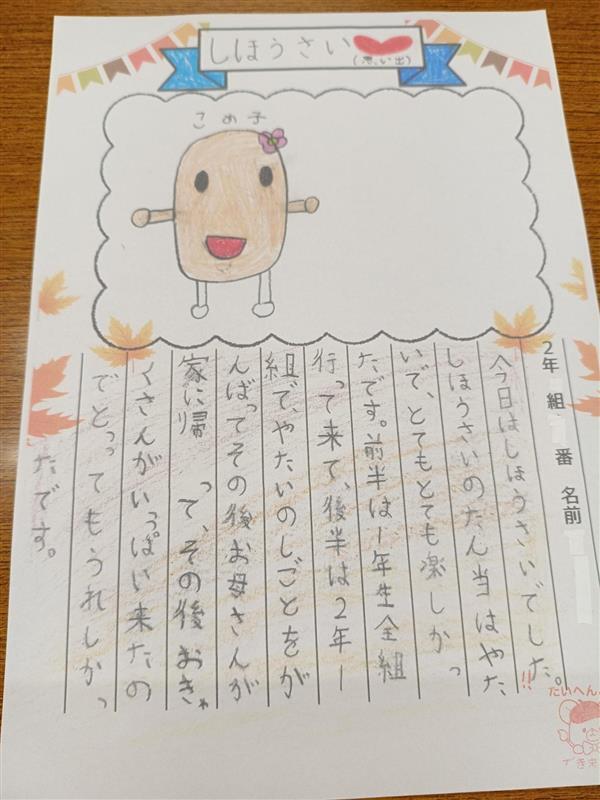 しほうさい
(思い出)
こめ子
2年 組 番 名前
今日はしほうさいでした。!!
しほうさいのたん当はやた
いで、とてもとても楽しかっ
たです。前半は1年生全組
行って来て、後半は2年1
組で、やたいのしごとをが
んばってその後お母さんが
家に帰って、その後おきゃ
くさんがいっぱい来たの
でとってもうれしかっ
たです。
たいへん